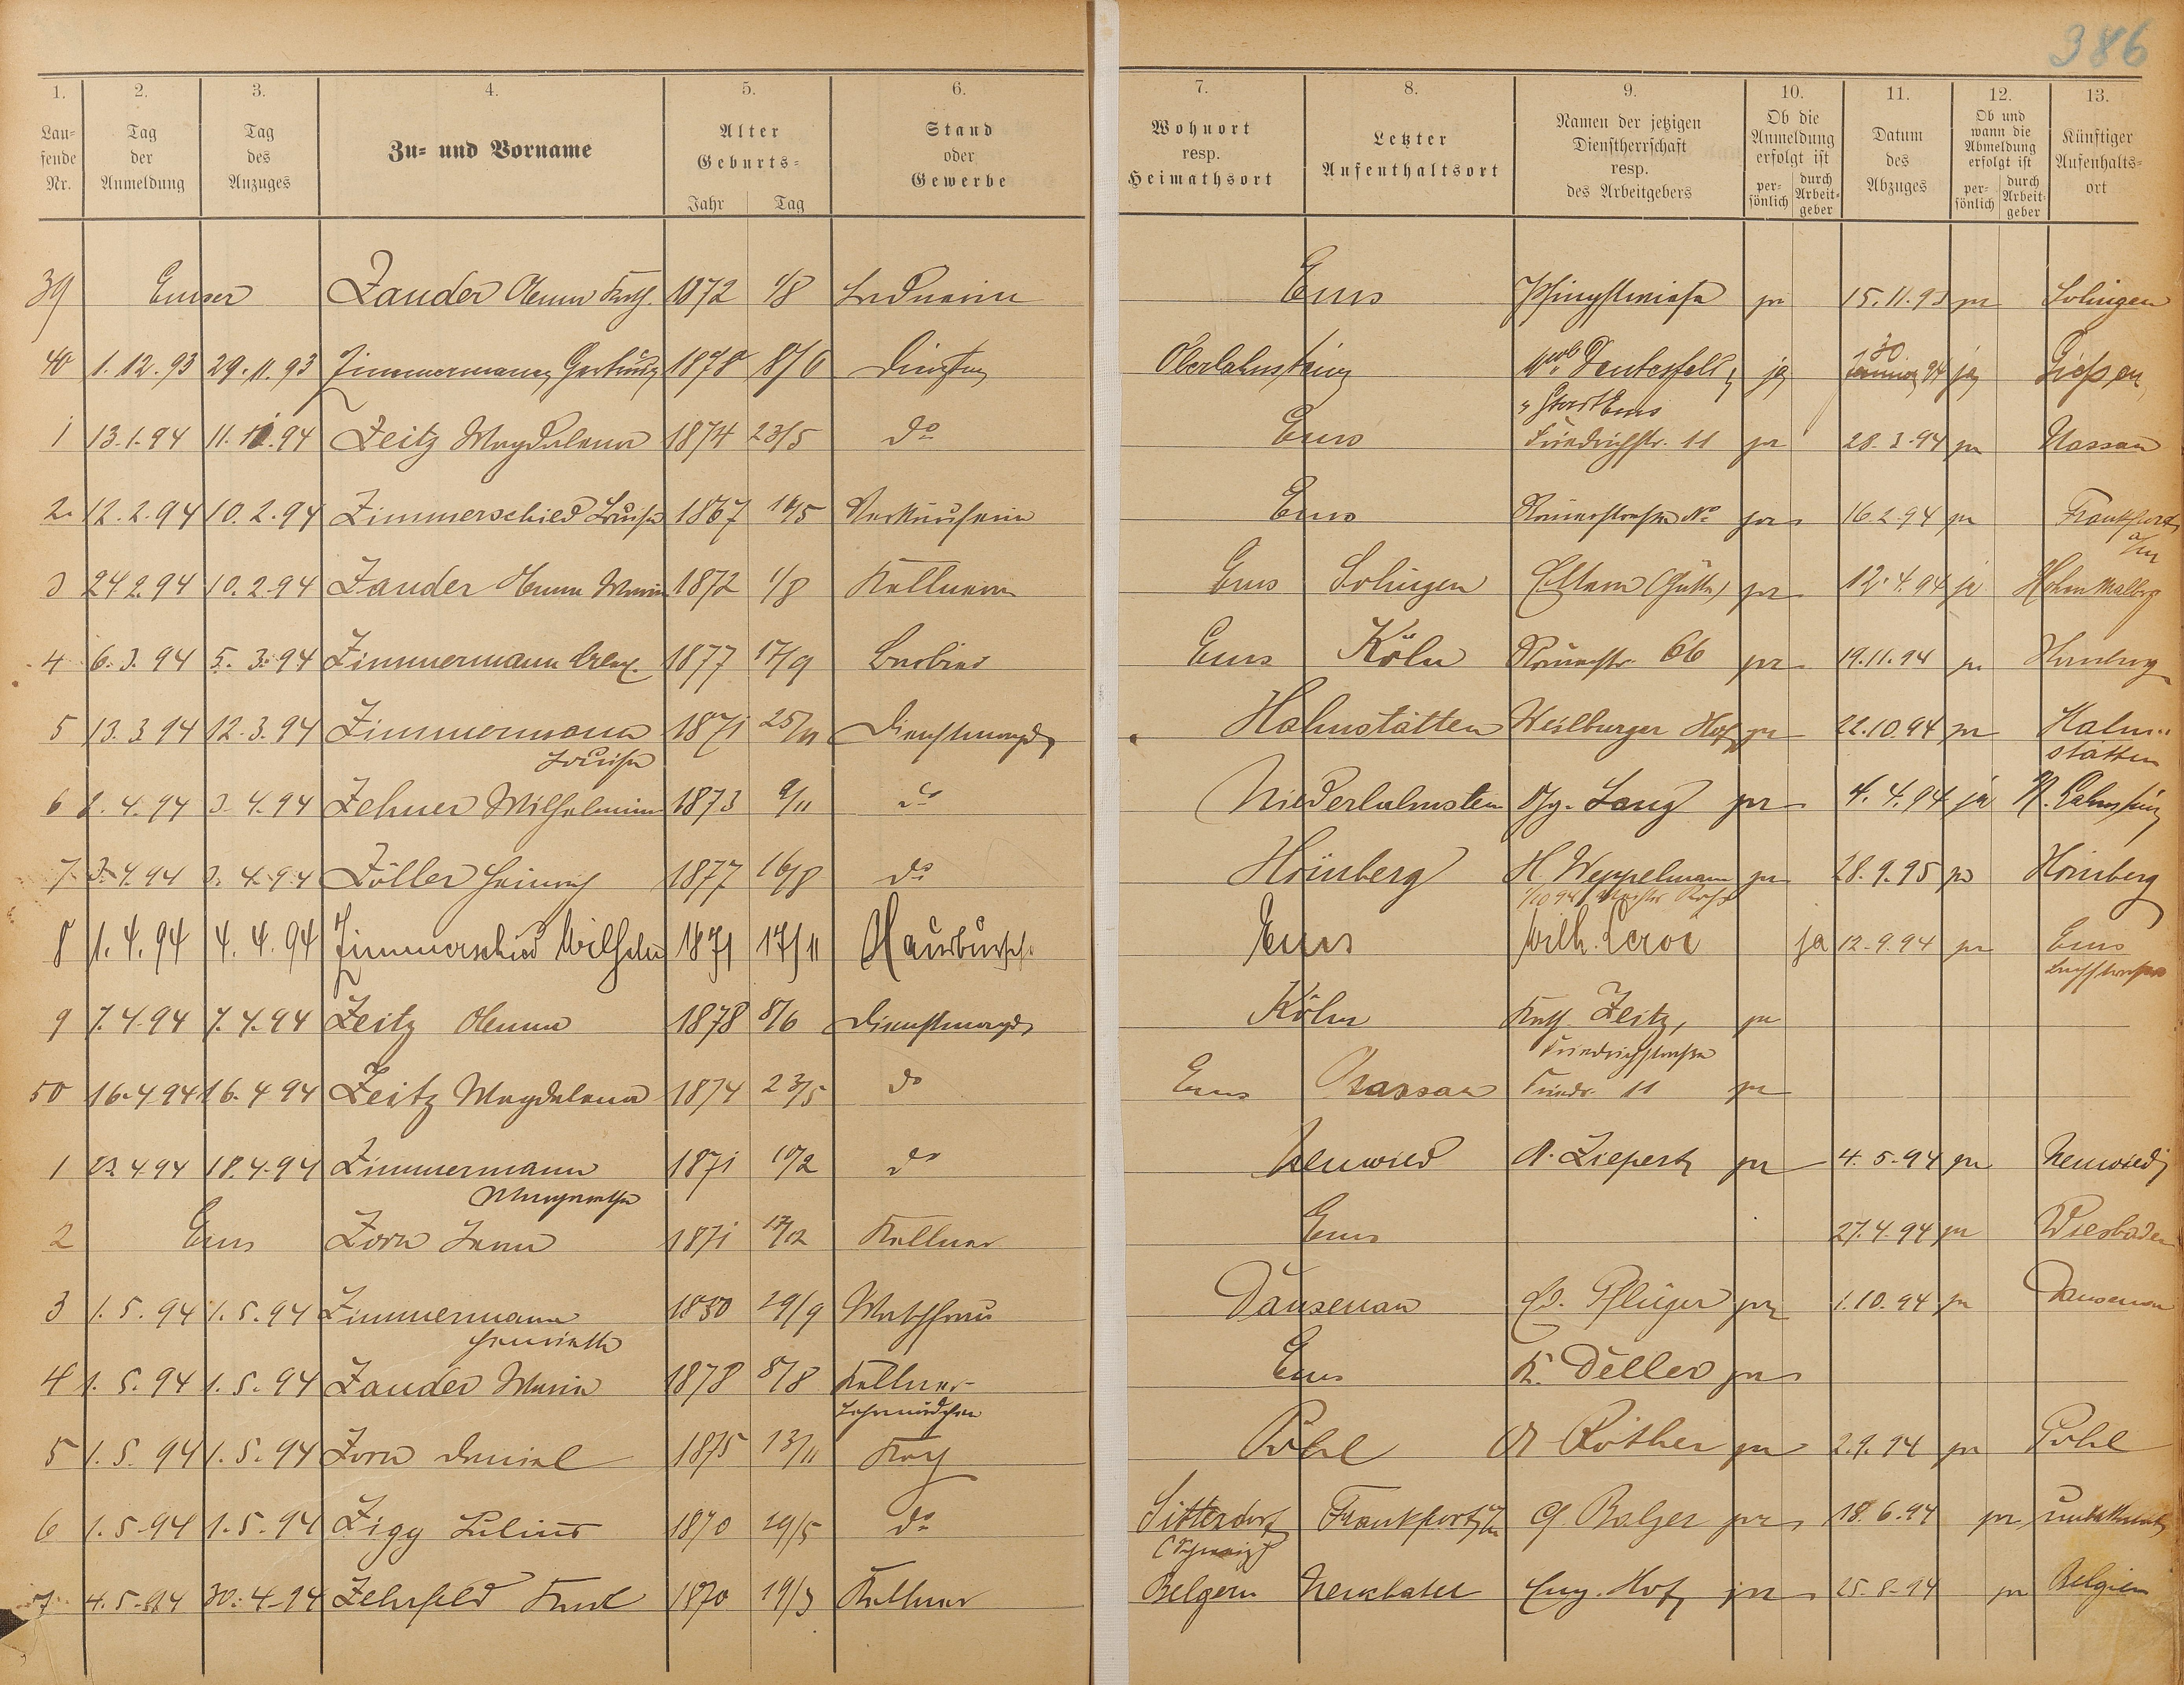 386
1. 2. 3. 4. 5. 6. 7. 8. 9. 10. 11. 12. 13.
Lau-
fende
Nr.
Tag
der
Anmeldung
Tag
des
Anzuges
Zu- und Vorname
Alter
Geburts-
Jahr Tag
Stand
oder
Gewerbe
Wohnort
resp.
Heimathsort
Letzter
Aufenthaltsort
Namen der jetzigen
Dienstherrschaft
resp.
des Arbeitgebers
Ob die
Anmeldung
erfolgt ist
per-
sönlich
durch
Arbeit-
geber
Datum
des
Abzuges
Ob und
wann die
Abmeldung
erfolgt ist
per-
sönlich
durch
Arbeit-
geber
Künftiger
Aufenthalts-
ort
39 Emser Zander Anna Kath. 1872 1/8 Ems Pfingstwiese ja 15.11.93 ja Solingen
40 1.12.93 29.11.93 Zimmermann Gertrud 1878 8/6 Oberlahnstein ja 94 ja Giessen
Stadt Ems
1 13.1.94 11.1.94 Zeitz Magdalena 1874 23/5 do Ems Friedrichstr. 11 ja 28.3.94 ja Nassau
2. 12.2.94 10.2.94 Zimmerschied Louise 1867 16/5 Verkäuferin Ems Römerstrasse No ja 16.2.94 ja Frankfurt
a/M
3 24.2.94 10.2.94 Zander Anna Maria 1872 1/8 Kellnerin Ems Solingen Eltern ja 12.4.94 ja Hohen Malberg
4 6.3.94 5.3.94 Zimmermann Alex. 1877 17/9 Barbier Ems Köln Römerstr. 66 ja 19.11.94 ja
5 13.3.94 12.3.94 Zimmermann 1871 25/11 Dienstmagd Hahnstätten Weilburger Hof ja 22.10.94 ja Hahn-
Louise stätten
6 4.94 3.4.94 Zehner Wilhelmine 1873 9/11 do Niederlahnstein Lang ja 4.4.94 ja N. Lahnstein
7 3.4.94 3.4.94 Zöller Heinrich 1877 16/8 do Hömberg H. Weppelmann ja 28.9.95 ja Hömberg
8 1.4.94 4.4.94 Zimmerschied Wilhelm 1871 17/11 Hausbursche Ems Wilh. Leroi ja 12.9.94 ja Ems
9 7.4.94 7.4.94 Zeitz Anna 1878 8/6 Dienstmagd Köln Kath. Zeitz, ja
Friedrichstrasse
50 16.4.94 16.4.94 Zeitz Magdalena 1874 23/5 do Ems Nassau Friedr. 11 ja
1 23.4.94 18.4.94 Zimmermann 1871 10/2 do Neuwied A. Ziepert ja 4.5.94 ja Neuwied
Margarethe
2 Ems Zorn 1871 17/12 Kellner Ems 27.4.94 ja Wiesbaden
3 1.5.94 1.5.94 Zimmermann 1850 29/9 Waschfrau Dausenau Pflüger ja 1.10.94 ja Dausenau
Henriette
4 1.5.94 1.5.94 Zander Maria 1878 8/8 Kellner- Ems K. Deller ja
Lehrmädchen
5 1.5.94 1.5.94 Zorn Daniel 1875 13/11 Koch Pohl A Röther ja 2.9.94 ja Pohl
6 1.5.94 1.5.94 Zigg Julius 1870 29/5 do Sitterdorf Frankfurt a/M Balzer ja 18.6.94 ja unbekannt
(Schweiz)
7 4.5.94 30.4.94 Zehrfeld 1870 19/3 Kellner Belgern Eng. Hof ja 25.8.94 ja Belgien